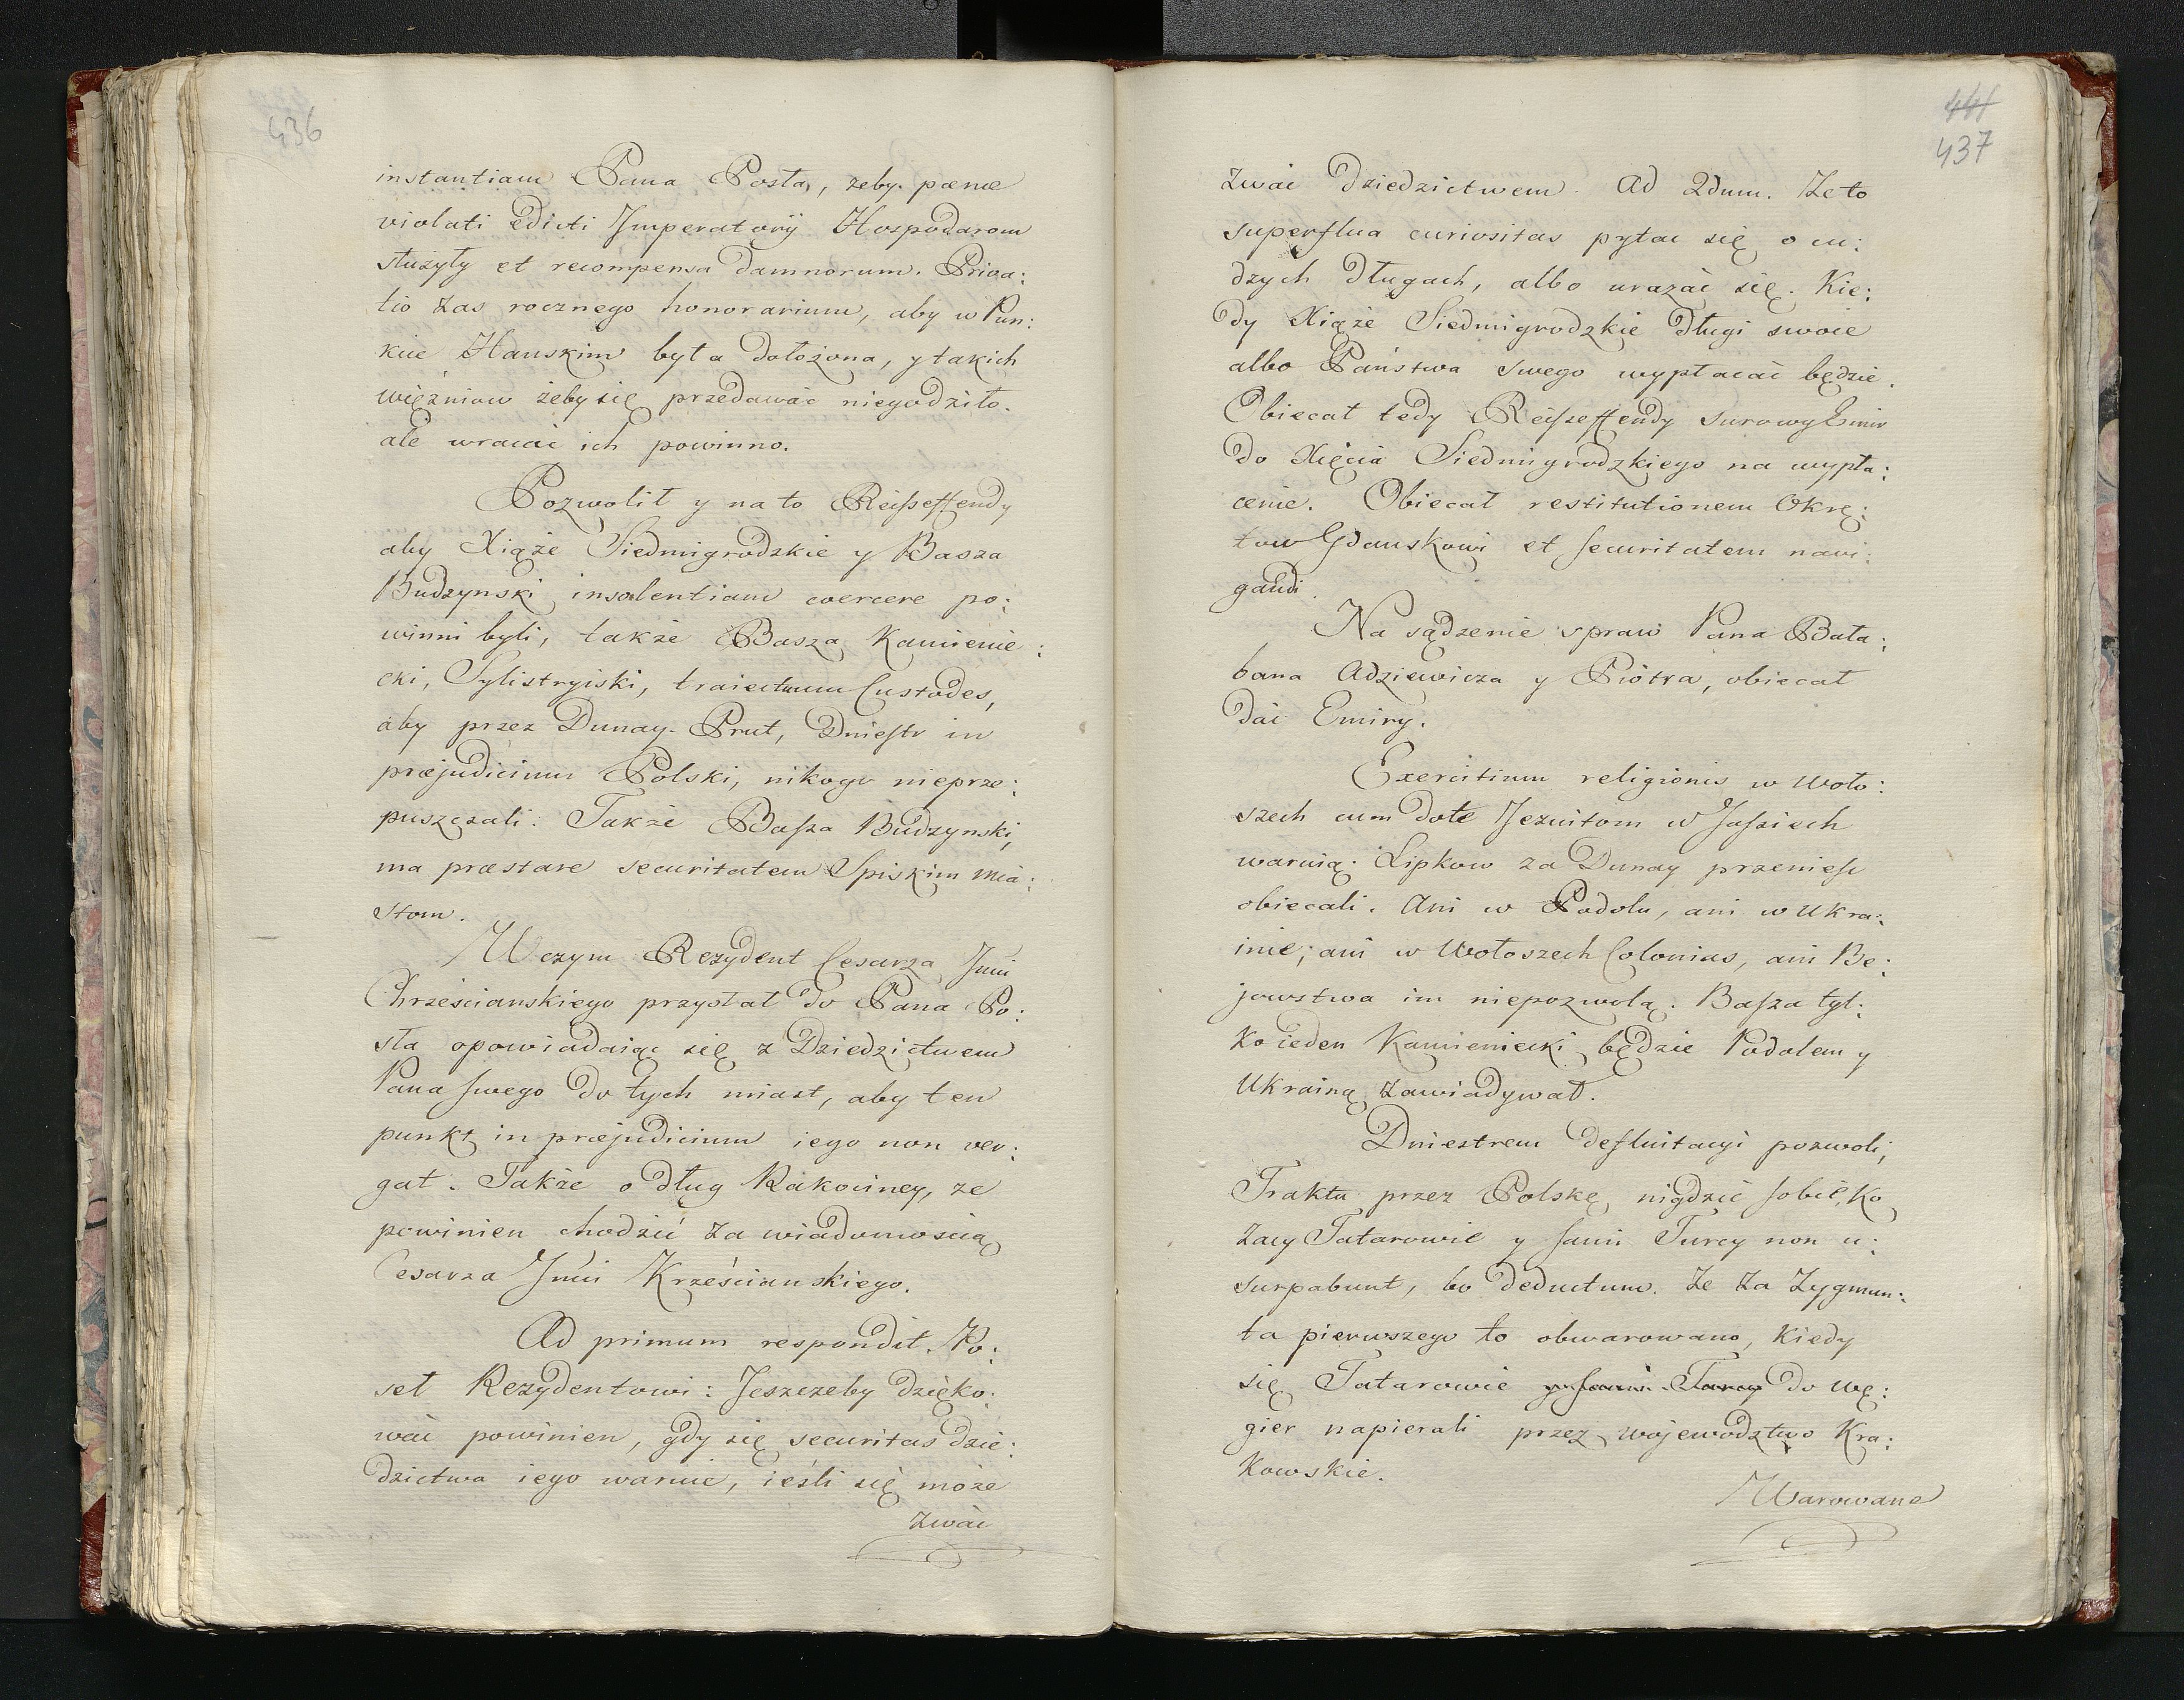 436
instantiam Pana Posła, zeby pœnæ
violati edicti Imperatorij Hospodarom
służyły et recompensa damnorum. Priva:
tio zas rocznego honorarium, aby w Pun:
kcie Hanskim była dołożona, y takich
więźniow żeby się przedawać niegodziło.
ale wracać ich powinno.
Pozwolił y na to Reisseffendy
aby Xiąże Siedmigrodzkie y Basza
Budzynski insolentiam coercere po:
winni byli, także Basza Kamienie:
cki, Sylistryiski, traiectuum Custodes,
aby przez Dunay. Prut, Dniestr in
præjudicium Polski, nikogo nieprze:
puszczali. Także Bassa Budzynski,
ma præstare securitatem Spiskim mia:
stom.
W czym Rezydent Cesarza Jmci
Chrześcianskiego przysłał do Pana Po:
sła opowiadaiąc się z Dziedzictwem
Pana swego do tych miast, aby ten
punkt in præjudicium iego non ver:
gat. Także o dług Rakociney, ze
powinien chodzić za wiadomoscią
Cesarza Jmci Krześcianskiego.
Ad primum respondit. Po:
seł Rezydentowi: Jeszczeby dzięko:
wać powinien, gdy się securitas dzie:
dzictwa iego waruie, ieśli się może
zwać
441
437
zwać Dziedzictwem. Ad 2dum. Ze to
superflua curiositas pytać się o cu:
dzych Długach, albo urazać się. Kie:
dy Xiąże Siedmigrodzkie Długi swoie
albo Państwa swego wypłacać będzie.
Obiecał tedy Reisseffendy surowy Emir
do Xięcia Siedmigrodzkiego na wypła:
cenie. Obiecał restitutionem Okrę:
tow Gdanskowi et securitatem navi:
gandi.
Na sądzenie spraw Pana Bała:
bana Adziewicza y Piotra, obiecał
dać Emiry.
Exercitium religionis w Woło:
szech cum dote Jezuitom w Jassiech
waruią. Lipkow za Dunay przeniesc
obiecali. Ani w Podolu, ani w Ukra:
inie, ani w Wołoszech Colonias, ani Be:
jowstwa im niepozwolą. Bassa tyl:
ko ieden Kamieniecki będzie Podolem y
Ukrainą zawiadywał.
Dniestrem defluitacyi pozwoli,
Traktu przez Polskę nigdzie sobie, Ko
zacy Tatarowie y sami Turcy non u:
surpabunt, bo deductum. Ze za Zygmun:
ta pierwszego to obwarowano, kiedy
się Tatarowie y sami Turcy do Wę:
gier napierali przez wojewodztwo Kra:
kowskie.
Warowane